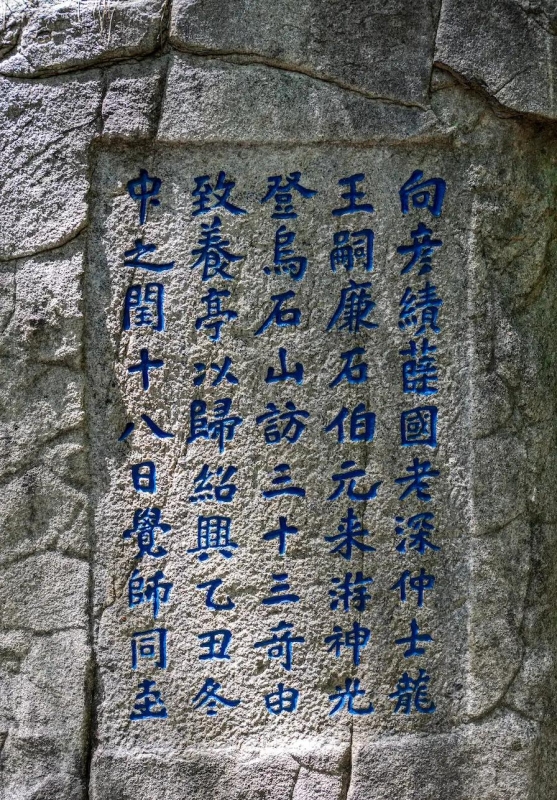 向彦績薩國老深仲士龍
王嗣廉石伯元来游神光
登烏石山訪三十三奇由
致養亭以歸紹興乙丑冬
中之閏十八日覺師同至